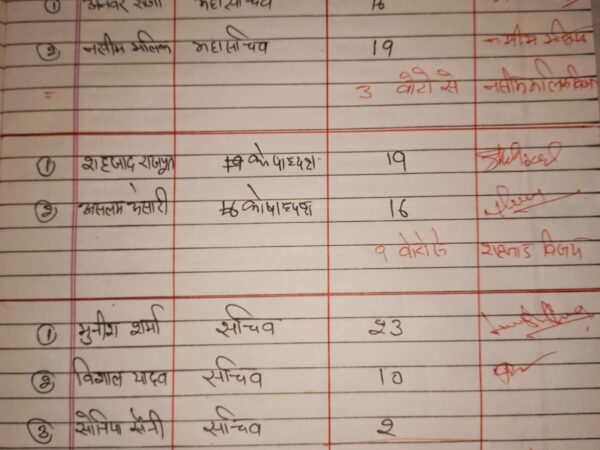 ① अनवर राजा महासचिव 16
② नसीम मलिक महासचिव 19
= 3 वोटो से नसीम मलिक विजय
① शहजाद राजपूत कोषाध्यक्ष 19
② असलम केसरी कोषाध्यक्ष 16
वोटो से शहजाद विजय
① मुनीश शर्मा सचिव 23
② विशाल यादव सचिव 10
③ सोनिया सैनी सचिव 2